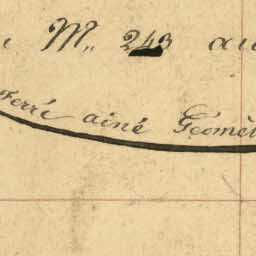 M. 243 au
Ferré ainé Géomèt